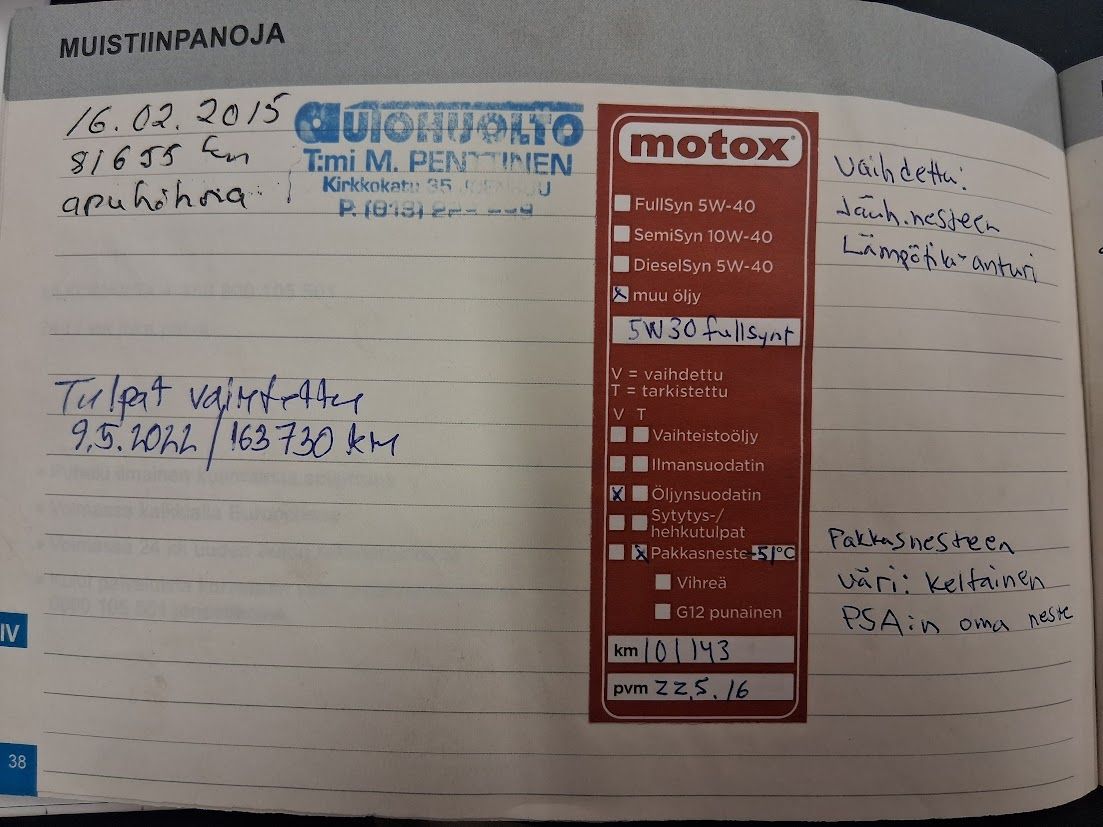 MUISTIINPANOJA
16.02.2015
81655 km
apuhihna
AUTOHUOLTO
T:mi M. PENTTINEN
Kirkkokatu 35 JOENSUU
P. (013)
Tulpat vaihdettu
9.5.2022 / 163730 km
motox
FullSyn 5W-40
SemiSyn 10W-40
DieselSyn 5W-40
x muu öljy
5W30 fullsynt
V = vaihdettu
T = tarkistettu
V T
Vaihteistoöljy
Ilmansuodatin
x Öljynsuodatin
Sytytys-/
hehkutulpat
x Pakkasneste -51°C
Vihreä
G12 punainen
km 101143
pvm 22.5.16
Vaihdettu:
Jäähd.nesteen
Lämpötila-anturi
Pakkasnesteen
väri: keltainen
PSA:n oma neste
IV
38